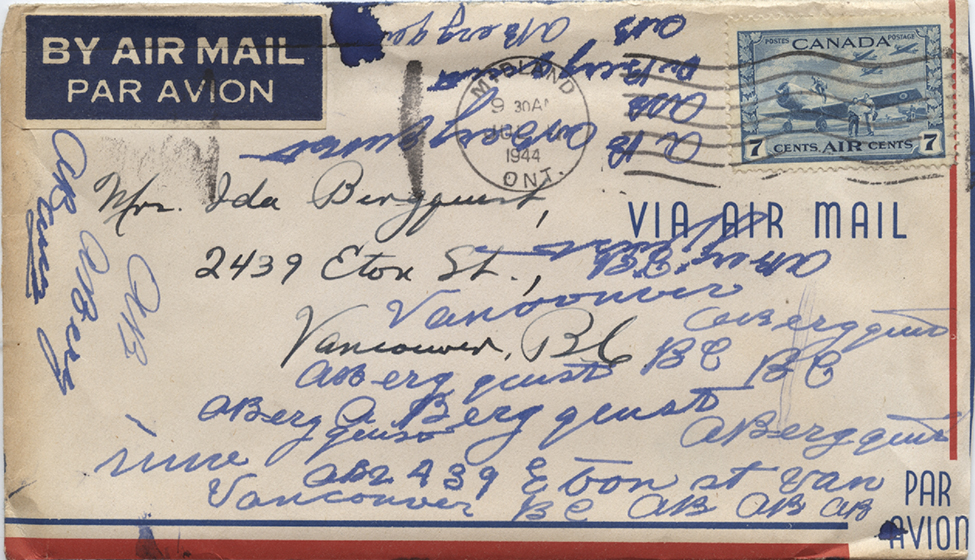 BY AIR MAIL
PAR AVION
POSTES CANADA POSTAGE
7 CENTS, AIR CENTS 7
MIDLAND
9 30 AM
1944
ONT.
AB
ABergqu
AB
AB
Mrs. Ida Bergquist,
VIA AIR MAIL
2439 Eton St.,
Vancouver
ABergquist
Vancouver, BC
BC
BC
ABergquist
A Bergquist
ABerg
ABergquist
2439 Eton st Van
Vancouver BC AB AB AB
PAR
AVION
ABerg
AB